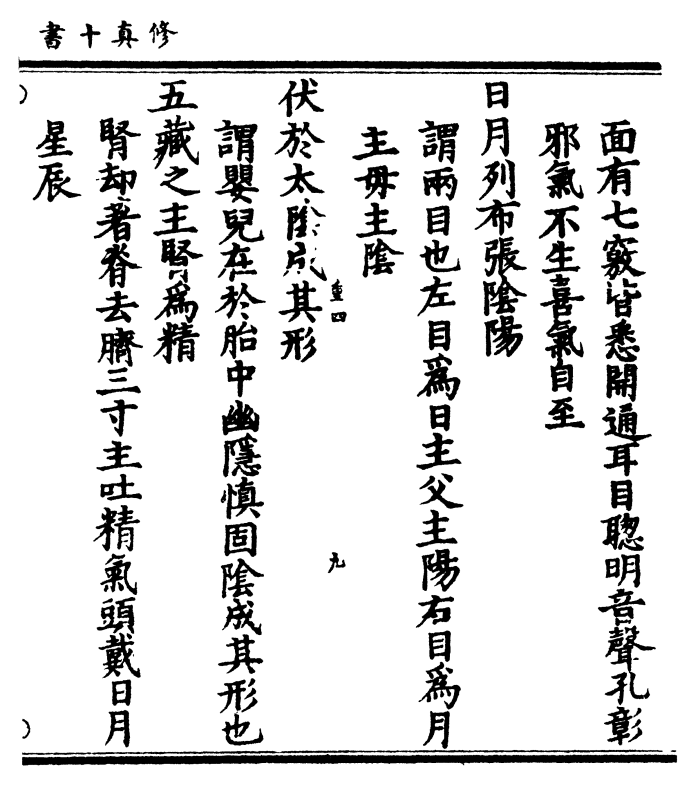 修真十書
面有七竅皆悉開通耳目聰明音聲孔彰
邪氣不生喜氣自至
日月列布張陰陽
謂兩目也左目爲日主父主陽右目爲月
主母主陰
重四
九
伏於太陰成其形
謂嬰兒在於胎中幽隱慎固陰成其形也
五藏之主腎爲精
腎却著脊去臍三寸主吐精氣頭戴日月
星辰